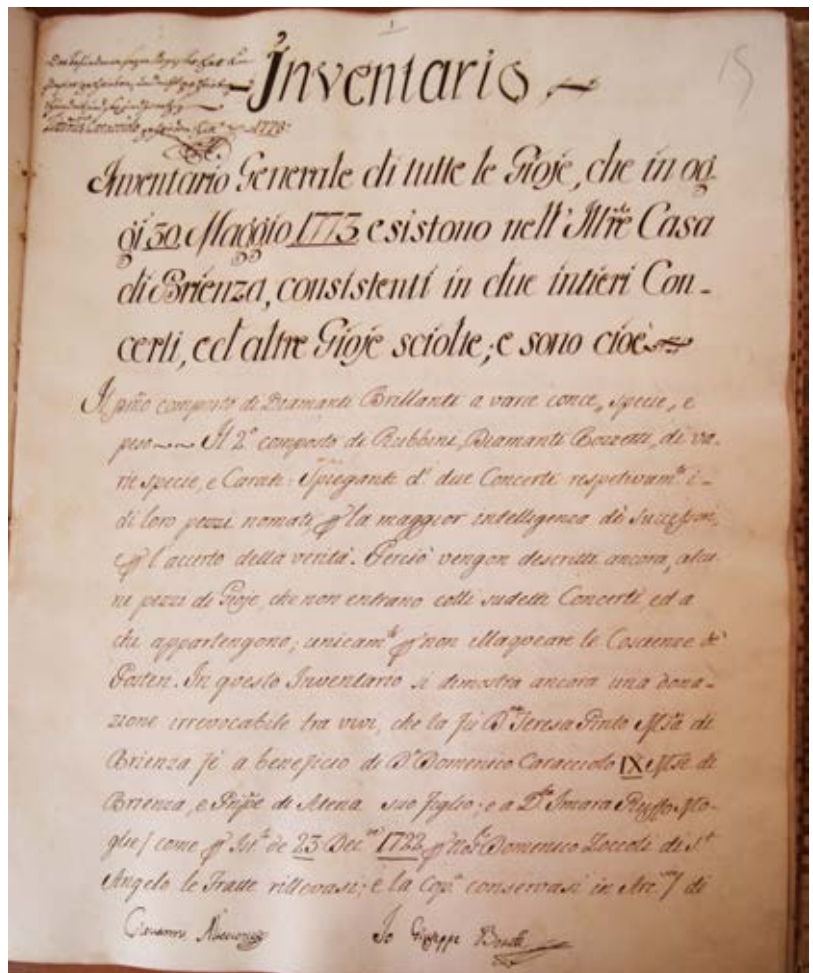 1
15
1778
Inventario
Inventario Generale di tutte le Gioje, che in og
gi 30 Maggio 1773 esistono nell' Ill.re Casa
di Brienza, consistenti in due intieri Con-
certi, ed altre Gioje sciolte; e sono cioè
Il p̃mo composto di Diamanti Brillanti a varie conce, specie, e
peso Il 2° composto di Rubbini, Diamanti Bozzetti, di va-
rie specie, e Carati. Spiegante d.i due Concerti respetivam.te i
di loro pezzi nomati, p la maggior intelligenza de Successori,
e p l'accerto della verità. Perciò vengon descritti ancora, alcu
ni pezzi di Gioje, che non entrano colli sudetti Concerti, ed a
chi appartengono; unicam.te p non illaqueare le Coscienze de'
Posteri. In questo Inventario si dimostra ancora una dona-
zione irrevocabile tra vivi, che la fù D. Teresa Pinto M.sa di
Brienza fè a beneficio di D. Domenico Caracciolo IX M.se di
Brienza, e Prñpe di Atena suo figlio; e a D. Imara Ruffo Mo-
glie/ come p Ist.o de 23 Dec. 1722 p Not. Domenico Zoccoli di S.t
Angelo le Fratte rilevasi; e la Cop.a conservasi in Arc./ di
Giovanni
Io Giuseppe